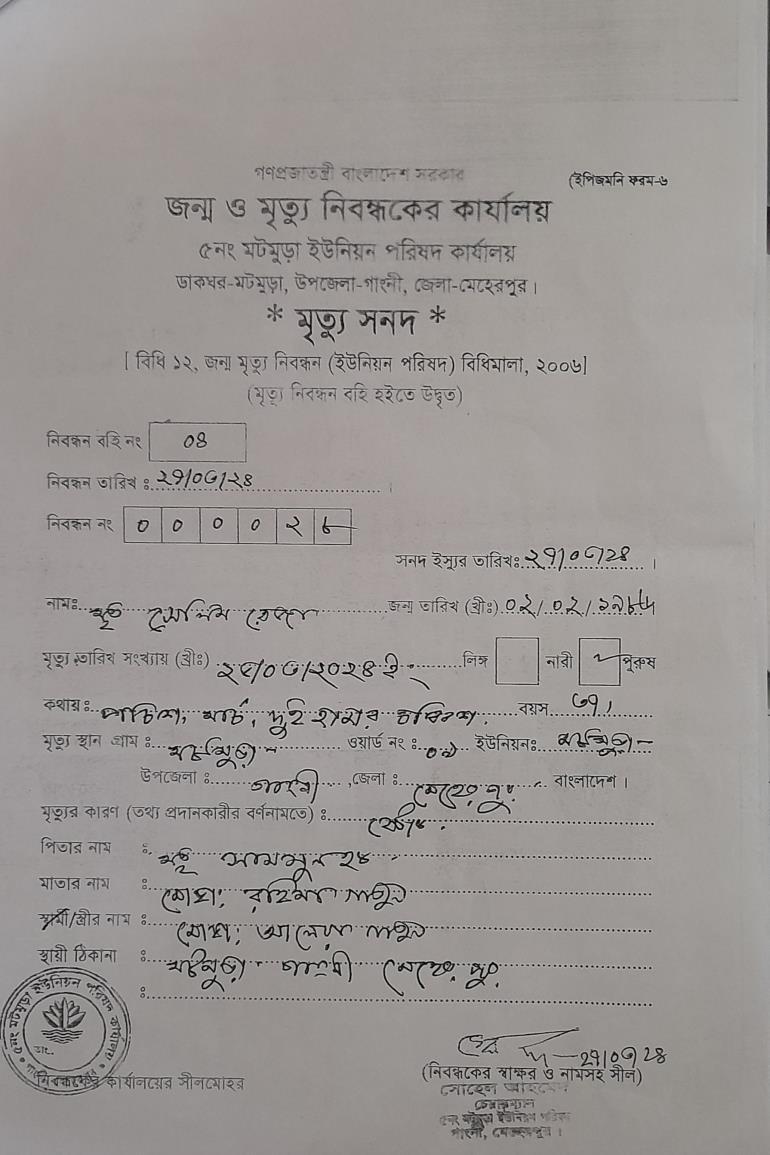 গণপ্রজাতন্ত্রী বাংলাদেশ সরকার
(ইপিজমনি ফরম-৬
জন্ম ও মৃত্যু নিবন্ধকের কার্যালয়
৫নং মটমুড়া ইউনিয়ন পরিষদ কার্যালয়
ডাকঘর-মটমুড়া, উপজেলা-গাংনী, জেলা-মেহেরপুর।
* মৃত্যু সনদ *
[ বিধি ১২, জন্ম মৃত্যু নিবন্ধন (ইউনিয়ন পরিষদ) বিধিমালা, ২০০৬]
(মৃত্যু নিবন্ধন বহি হইতে উদ্ধৃত)
নিবন্ধন বহি নং ০৪
নিবন্ধন তারিখ ঃ ২৭/০৩/২৪ ।
নিবন্ধন নং ০ ০ ০ ০ ২ ৮
সনদ ইস্যুর তারিখঃ ২৭/০৩/২৪ ।
নামঃ মৃত সেলিম রেজা জন্ম তারিখ (খ্রীঃ) ০২/০২/১৯৮৮
মৃত্যু তারিখ সংখ্যায় (খ্রীঃ) ২৫/০৩/২০২৪ ইং লিঙ্গ নারী পুরুষ
কথায় ঃ পঁচিশ, মার্চ, দুই হাজার চব্বিশ। বয়স
মৃত্যু স্থান গ্রাম ঃ মটমুড়া ওয়ার্ড নং ঃ ইউনিয়নঃ মটমুড়া
উপজেলা ঃ গাংনী ,জেলা ঃ মেহেরপুর বাংলাদেশ ।
মৃত্যুর কারণ (তথ্য প্রদানকারীর বর্ণনামতে) ঃ
পিতার নাম ঃ মৃত
মাতার নাম ঃ মোছাঃ রহিমা খাতুন
স্বামী/স্ত্রীর নাম ঃ মোছাঃ খাতুন
স্থায়ী ঠিকানা ঃ মটমুড়া গাংনী মেহেরপুর
ঃ
৫নং মটমুড়া ইউনিয়ন পরিষদ কার্যালয়
২৭/০৩/২৪
নিবন্ধকের কার্যালয়ের সীলমোহর
(নিবন্ধকের স্বাক্ষর ও নামসহ সীল)
সোহেল আহমেদ
চেয়ারম্যান
৫নং মটমুড়া ইউনিয়ন পরিষদ
গাংনী, মেহেরপুর ।